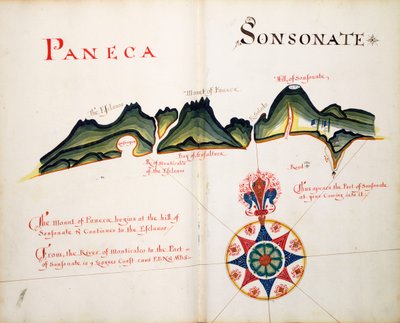 PANECA
SONSONATE
The Esclavos
Mount of Paneca
Hill of Sonsonate
R. of Monticalco
of the Esclavos
Road
Thus apears the Port of Sonsonate
at your Coming into it.
The Mount of Paneca begins at the hill of
Sonsonate & Continues to the Esclavos
From the River of Monticalco to the Port
of Sonsonate is 9 Leagues Coast runs